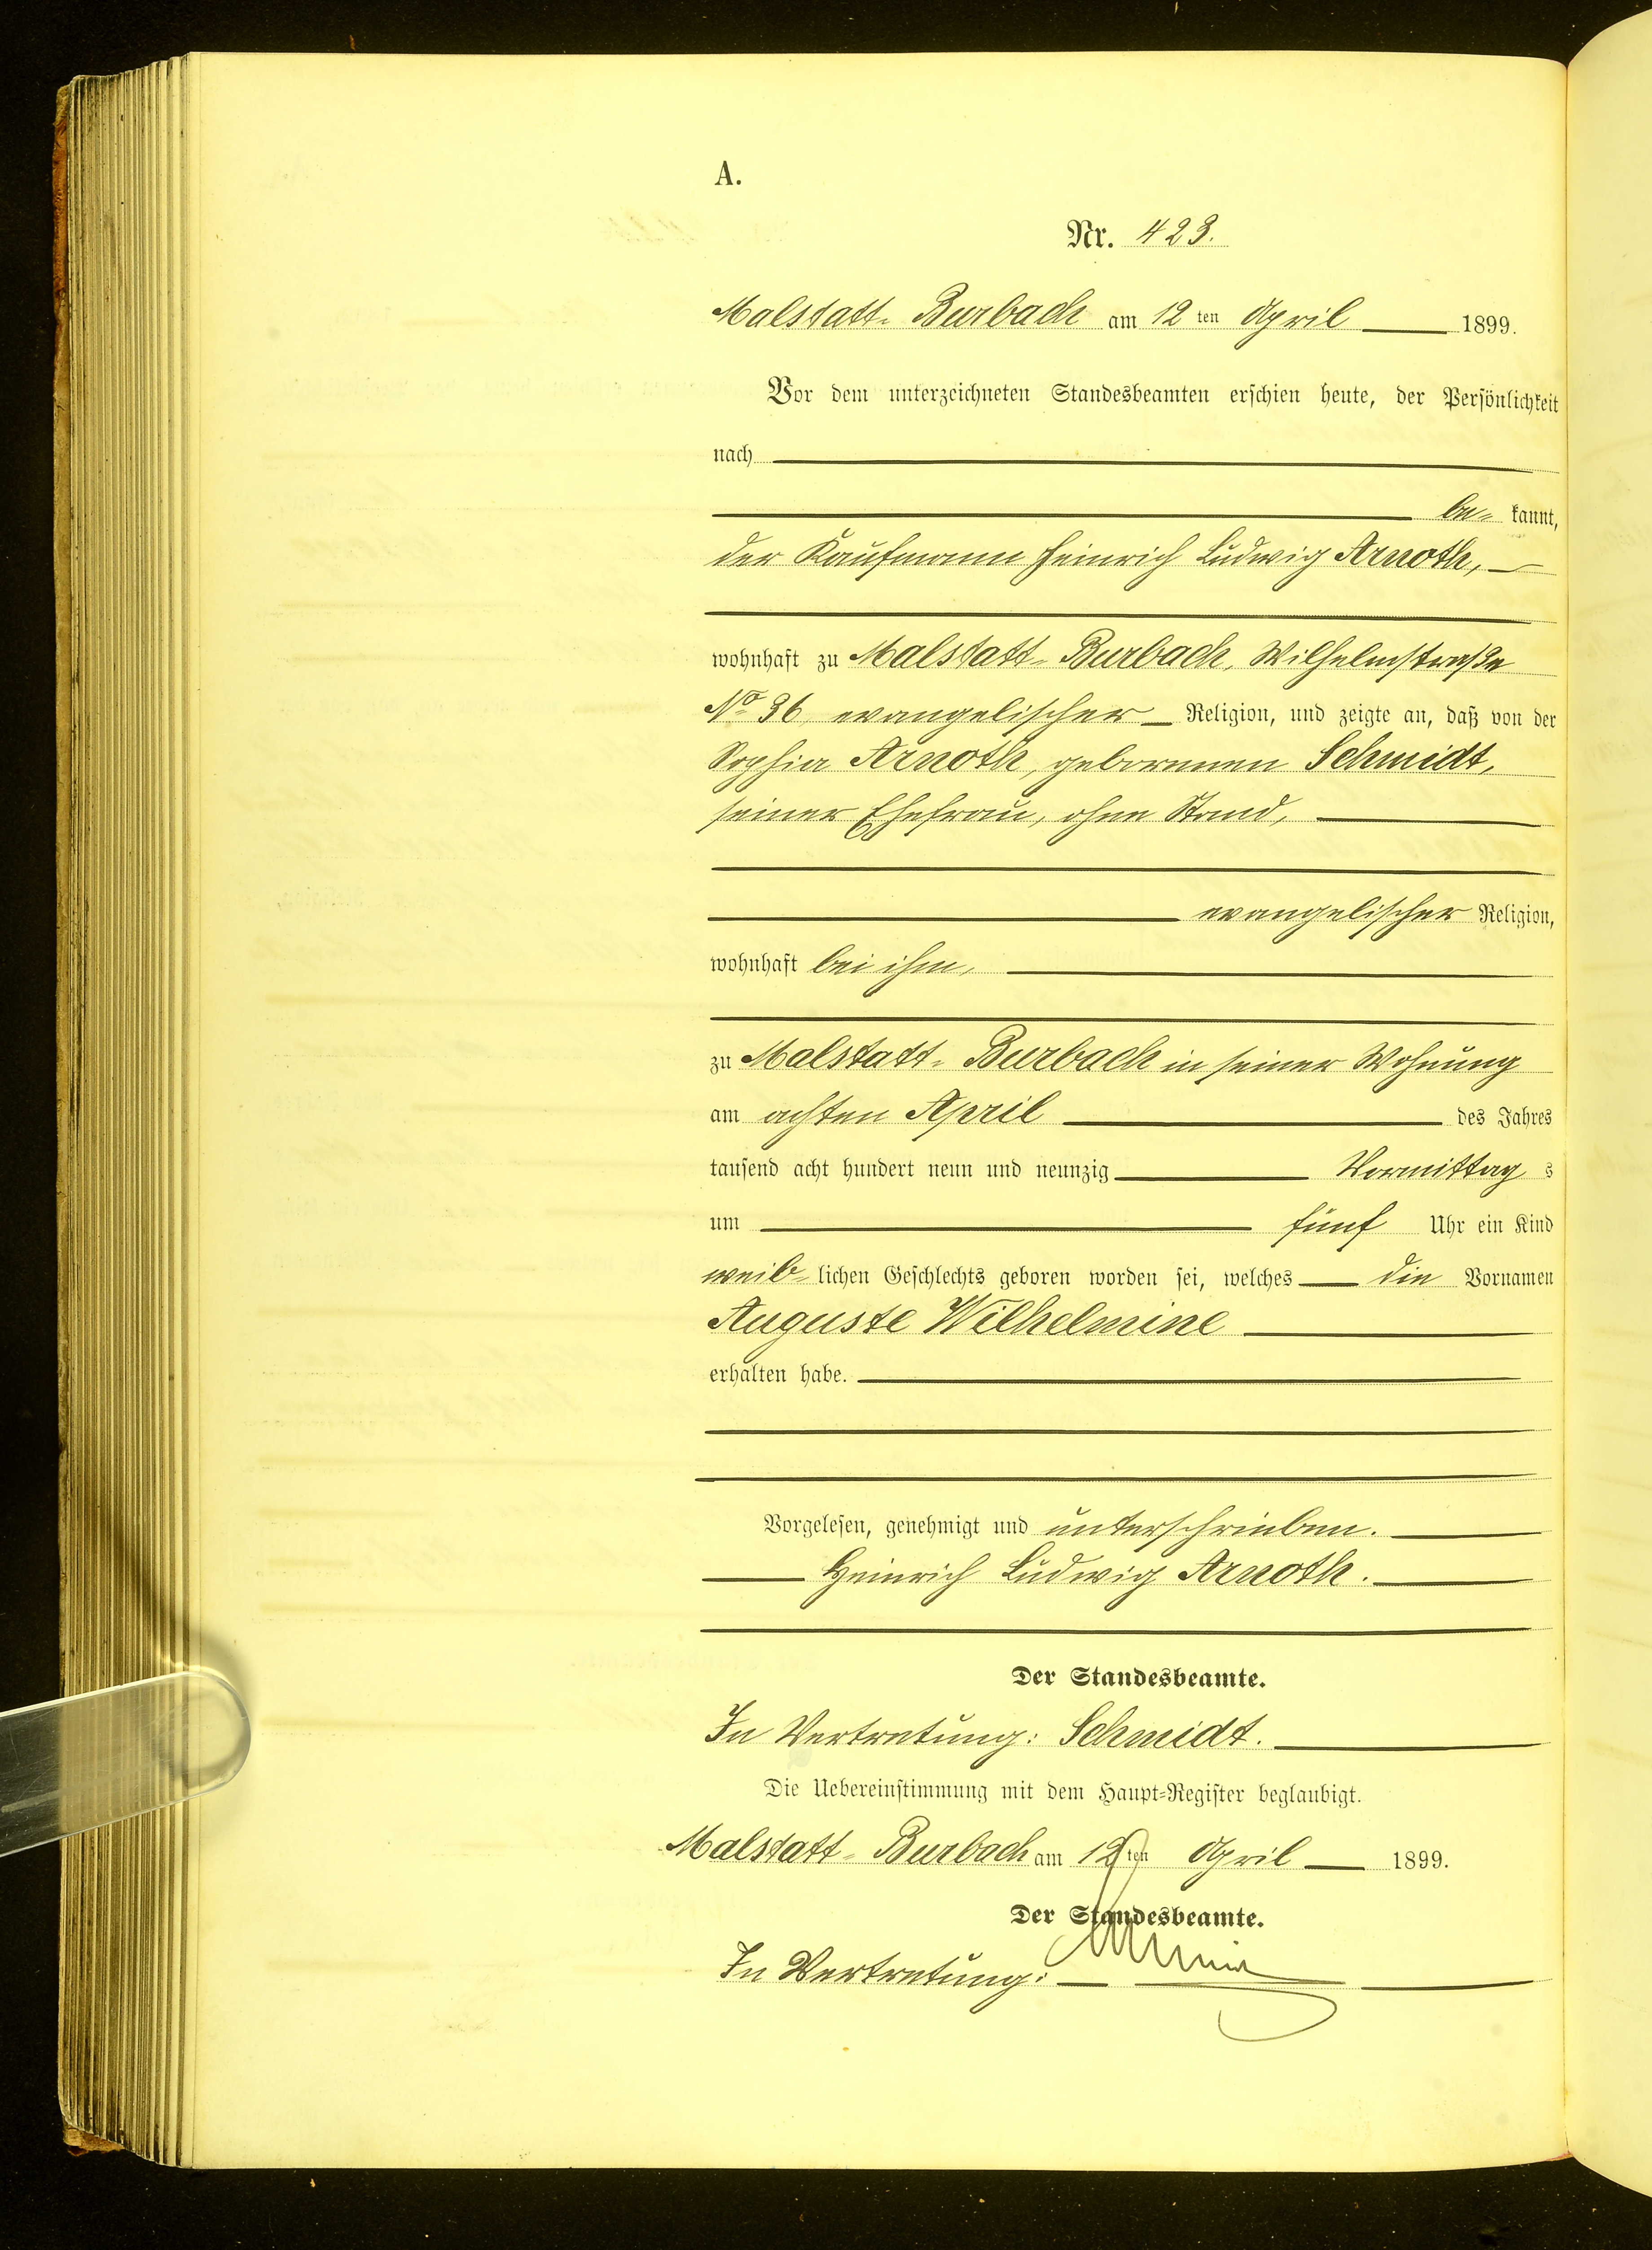 A.
Nr. 423.
Malstatt-Burbach am 12 ten April 1899.
Vor dem unterzeichneten Standesbeamten erschien heute, der Persönlichkeit
nach
be- kannt,
der Kaufmann Heinrich Ludwig Arnoth,
wohnhaft zu Malstatt-Burbach, Wilhelmstraße
No 36, evangelischer Religion, und zeigte an, daß von der
Sophia Arnoth, geborenen Schmidt,
seiner Ehefrau, ohne Stand,
evangelischer Religion,
wohnhaft bei ihm,
zu Malstatt-Burbach in seiner Wohnung
am achten April des Jahres
tausend acht hundert neun und neunzig Vormittag s
um fünf Uhr ein Kind
weib- lichen Geschlechts geboren worden sei, welches die Vornamen
Auguste Wilhelmine
erhalten habe.
Vorgelesen, genehmigt und unterschrieben.
Heinrich Ludwig Arnoth.
Der Standesbeamte.
In Vertretung: Schmidt.
Die Uebereinstimmung mit dem Haupt-Register beglaubigt.
Malstatt-Burbach am 12 ten April 1899.
Der Standesbeamte.
In Vertretung: